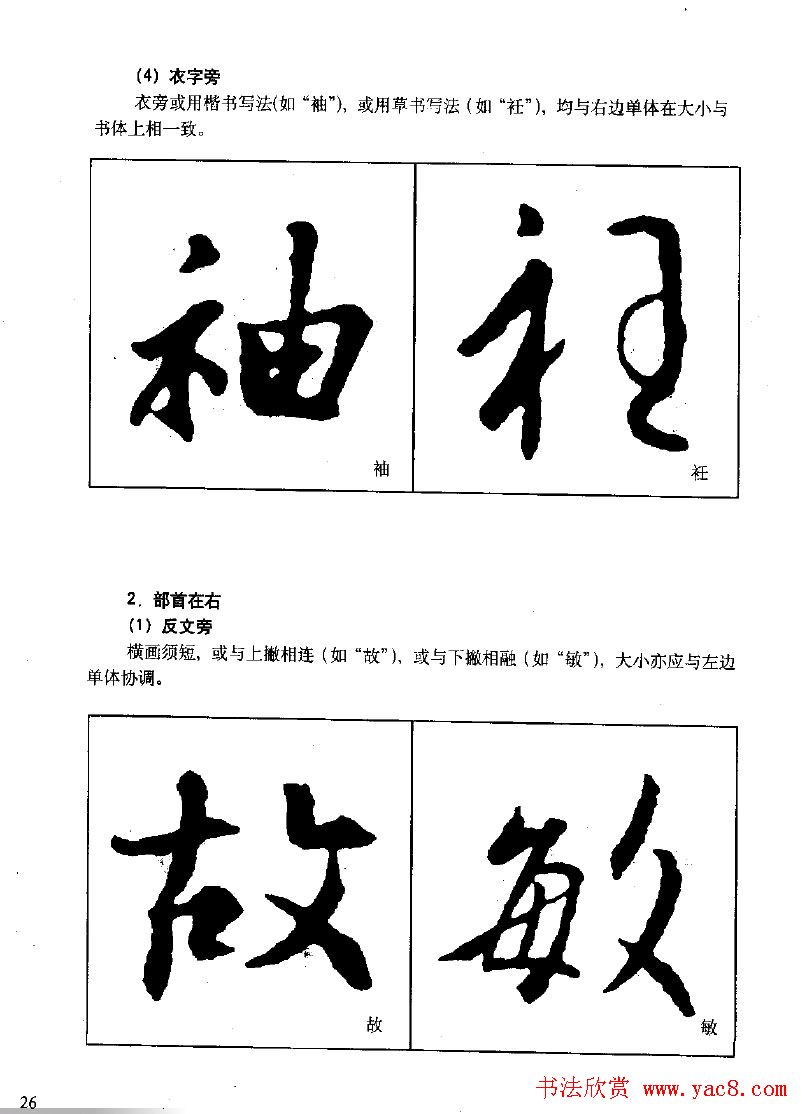 (4) 衣字旁
衣旁或用楷书写法(如“袖”)，或用草书写法(如“衽”)，均与右边单体在大小与
书体上相一致。
袖 衽
袖 衽
2. 部首在右
(1) 反文旁
横画须短，或与上撇相连(如“故”)，或与下撇相融(如“敏”)，大小亦应与左边
单体协调。
故 敏
故 敏
26
书法欣赏 www.yac8.com